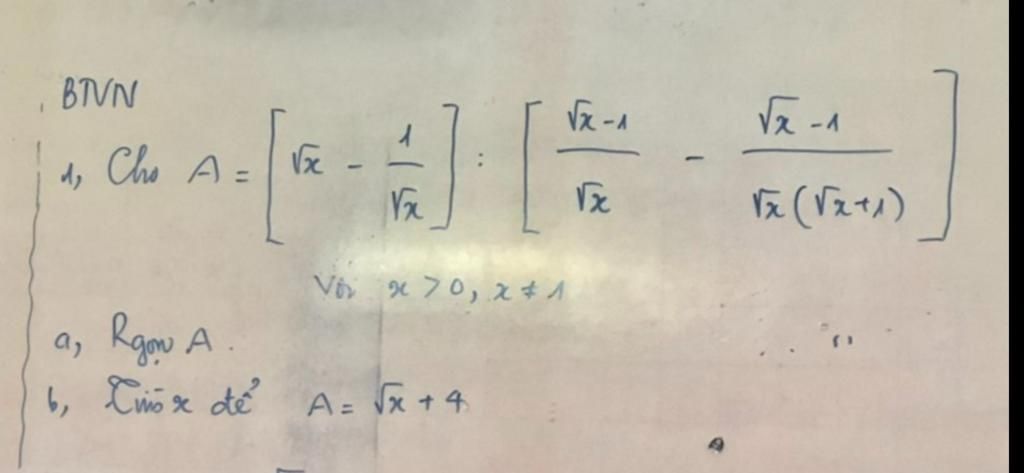 BTVN
1, Cho A = [√x - 1/√x] : [(√x - 1)/√x - (√x - 1)/(√x(√x+1))]
Với x > 0, x ≠ 1
a, Rgọn A.
b, Tìm x để A = √x + 4